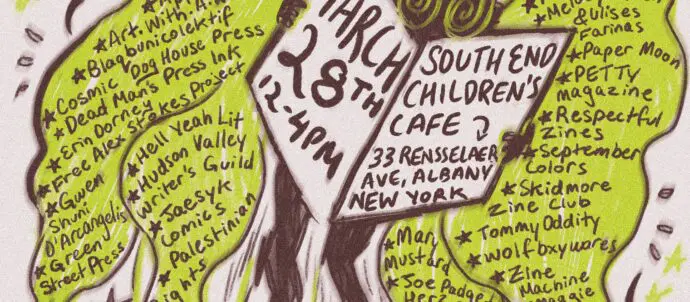 Art.With.A.
Blaqbunicolektif
Cosmic Dog House Press
Dead Man's Press Ink
Erin Dorney
Free Alex Stokes Project
Gwen
Shunt
D'Arcangelis
Green
Street Press
Hell Yeah Lit
Hudson Valley
Writer's Guild
Jaesyk
Comics
Palestinian
MARCH
28TH
12-4PM
SOUTH END
CHILDREN'S
CAFE
33 RENSSELAER
AVE, ALBANY
NEW YORK
& Ulises
Farinas
Paper Moon
PETTY
magazine
Respectful
Zines
September
Colors
Skidmore
Zine Club
Tommy Oddity
Wolfboxywares
Zine
Machine
Mary
Mustard
Joe